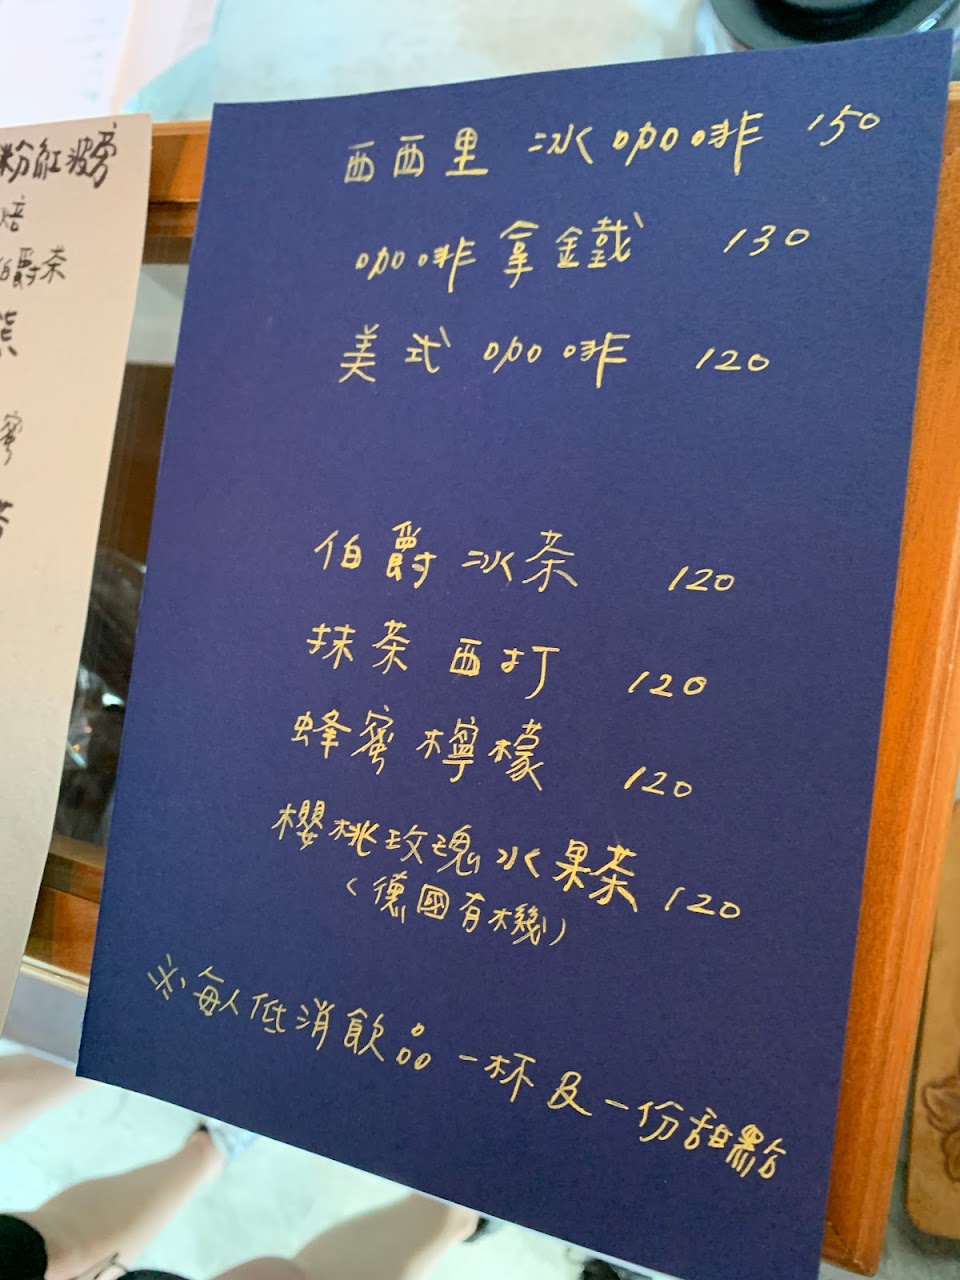 粉紅波旁
焙
伯爵茶
蜜
西西里 冰咖啡 150
咖啡拿鐵 130
美式咖啡 120
伯爵冰茶 120
抹茶西打 120
蜂蜜檸檬 120
櫻桃玫瑰水果茶 120
(德國有機)
※每人低消飲品一杯及一份甜點